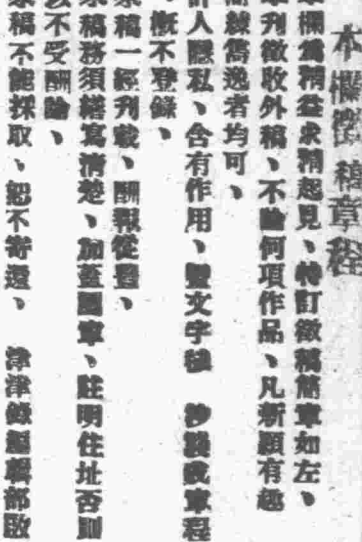 本欄徵稿章程
欄爲精益求精起見、特訂徵稿簡章如左、
刊徵收外稿、不論何項作品、凡新穎有趣
雋逸者均可、
人隱私、含有作用、文字 涉
概不登錄、
稿一經刊載、酬報從豐、
稿務須繕寫清楚、加蓋圖章、註明住址否則
不受酬論、
稿不能採取、恕不寄還、 津津 編輯部啟